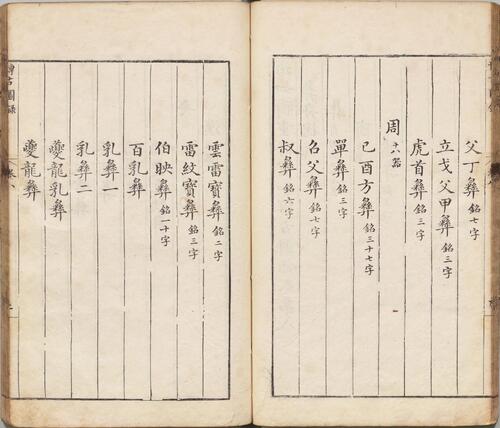 父丁彝 銘七字
立戈父甲彝 銘三字
虎首彝 銘三字
周 十八器
己酉方彝 銘三十七字
單彝 銘三字
召父彝 銘七字
叔彝 銘六字
雲雷寶彝 銘二字
雷紋寶彝 銘三字
伯映彝 銘一十字
百乳彝
乳彝一
乳彝二
夔龍乳彝
夔龍彝
博古圖錄 卷八